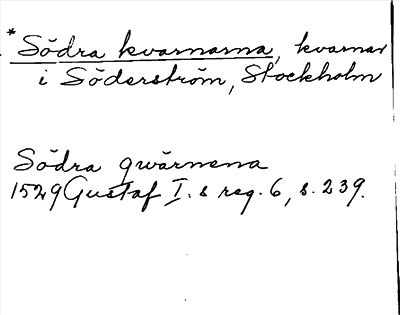 *Södra kvarnarna, kvarnar
i Söderström, Stockholm
Södra qwärnena
1529 Gustaf I.s reg. 6, s. 239.